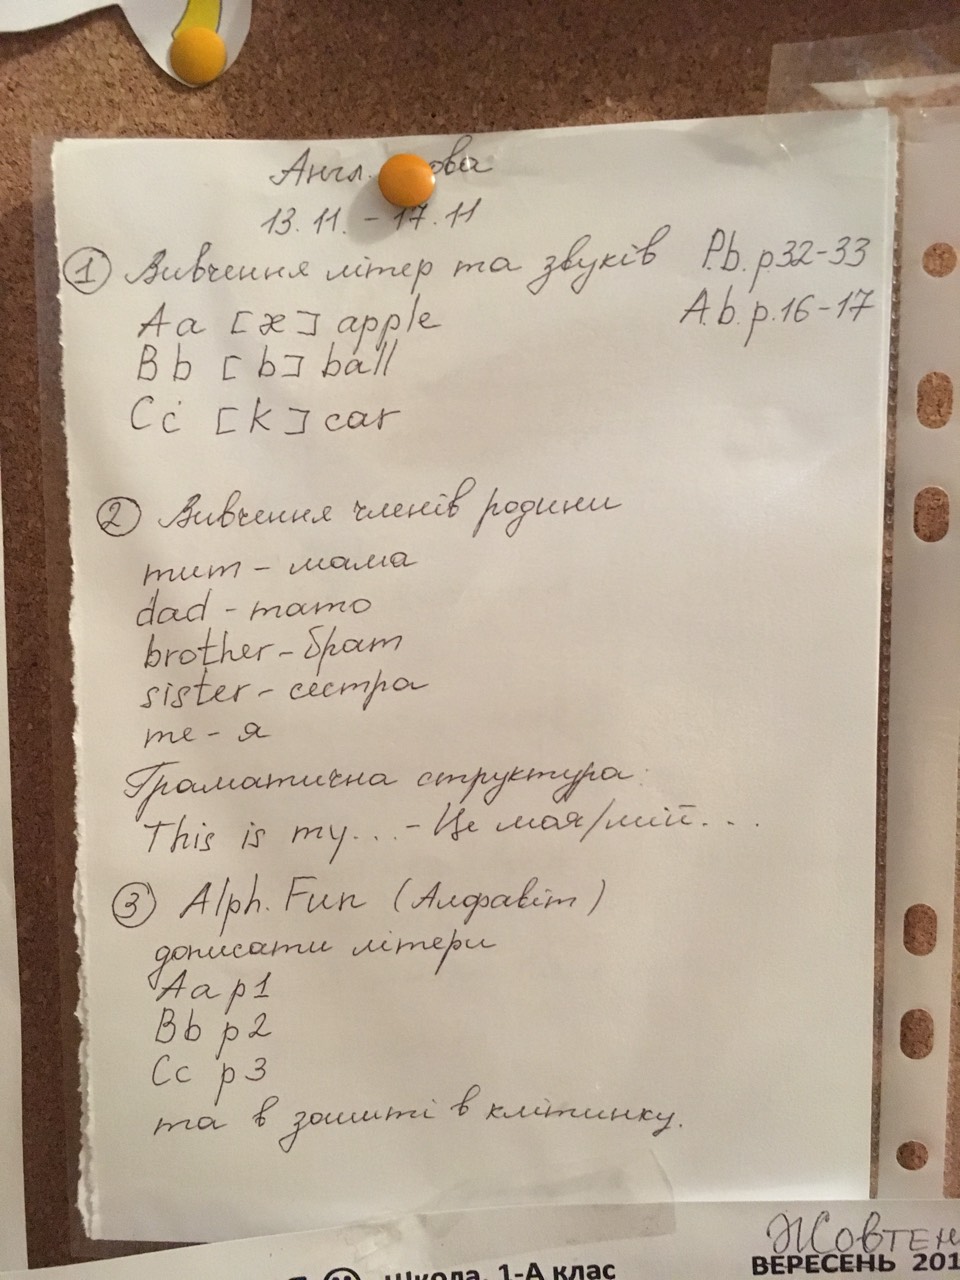 Англ.
13.11. - 17.11
① Вивчення літер та звуків P.b. p32-33
Aa [æ] apple A.b. p.16-17
Bb [b] ball
Cc [k] car
② Вивчення членів родини
mum - мама
dad - тато
brother - брат
sister - сестра
me - я
Граматична структура:
This is my... - Це моя/мій...
③ Alph. Fun (Алфавіт)
дописати літери
Aa p1
Bb p2
Cc p3
та в зошиті в клітинку.
ВЕРЕСЕНЬ
Школа, 1-А клас